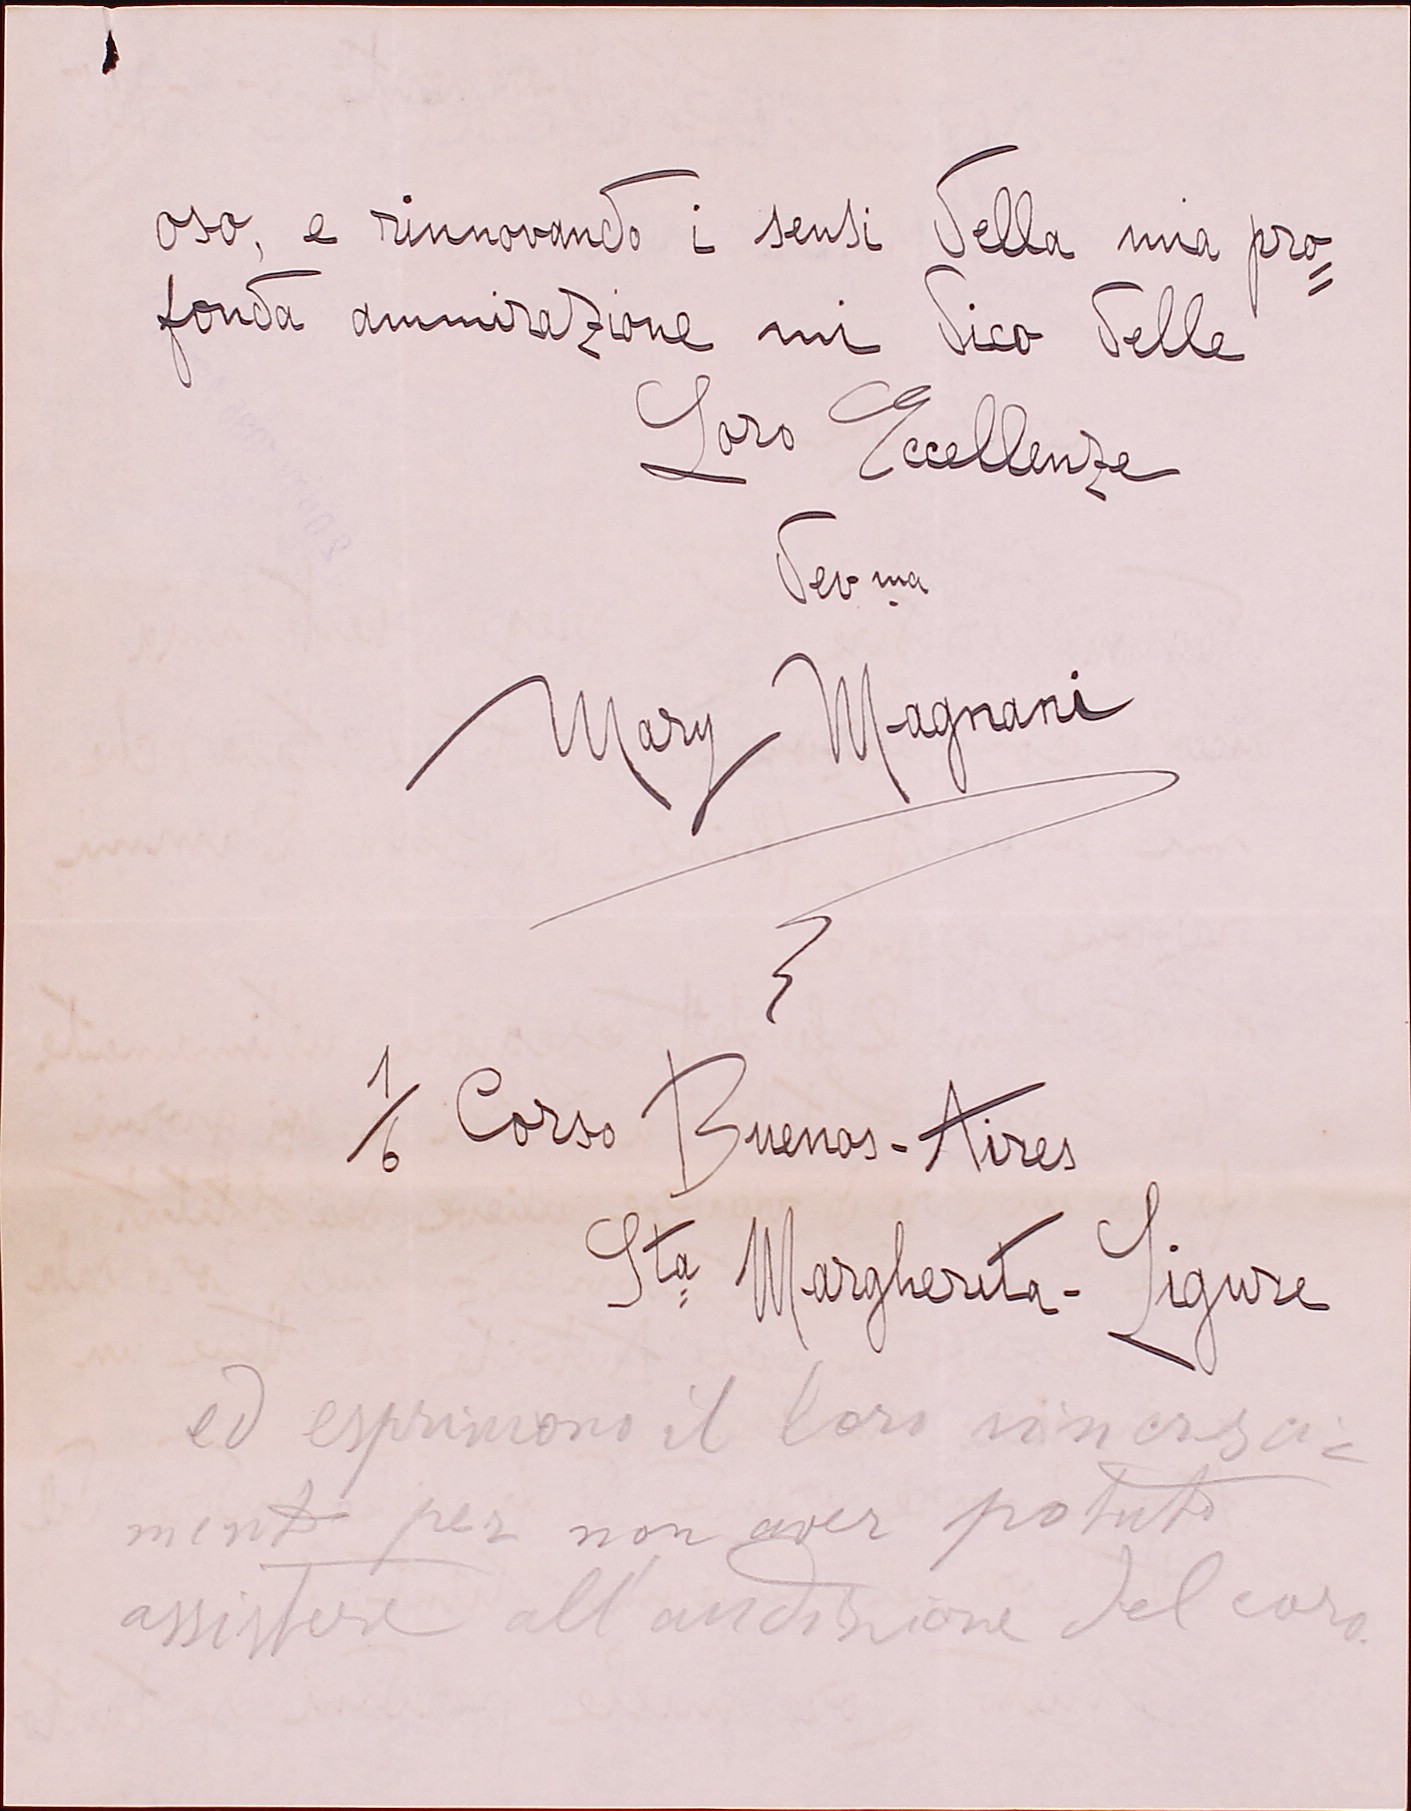 oso, e rinnovando i sensi della mia pro=
fonda ammirazione mi dico delle
Loro Eccellenze
dev ma
Mary Magnani
1/6 Corso Buenos-Aires
Sta Margherita-Ligure
ed esprimono il loro rincresci=
mento per non aver potuto
assistere all'audizione del coro.